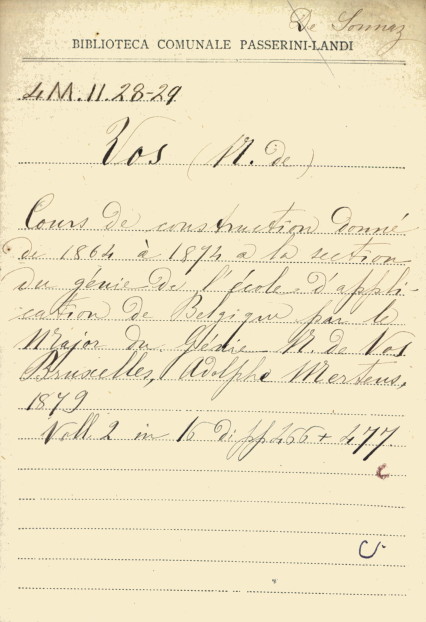 De Sonnaz
BIBLIOTECA COMUNALE PASSERINI-LANDI
4M.11.28-29
Vos (N. de)
Cours de construction donné
de 1864 à 1874 a la section
du génie de l'école d'appli-
cation de Belgique par le
Major du Génie N. de Vos
Bruxelles, Adolphe Mertens,
1879
Voll. 2 in 16 di pp. 466 + 477